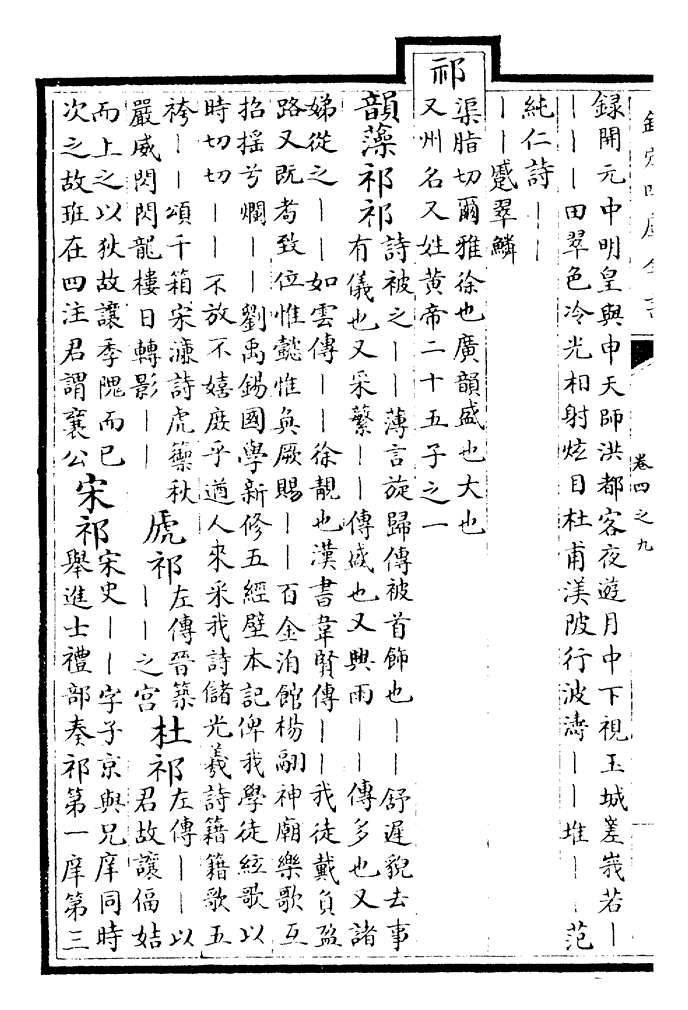 欽定四庫全書
卷四之九
録開元中明皇與申天師洪都客夜遊月中下視玉城嵳峩若｜
｜｜｜田翠色冷光相射炫目杜甫渼陂行波濤｜｜堆｜｜范
純仁詩｜｜
｜｜蹙翠鱗
祁
渠脂切爾雅徐也廣韻盛也大也
又州名又姓黄帝二十五子之一
韻藻祁祁
詩被之｜｜薄言旋歸傳被首飾也｜｜舒遲貌去事
有儀也又采蘩｜｜傳盛也又興雨｜｜傳多也又諸
娣從之｜｜如雲傳｜｜徐靚也漢書韋賢傳｜｜我徒戴負盈
路又既耇致位惟懿惟奐厥賜｜｜百金洎館楊翮神廟樂歌互
招揺兮爛｜｜劉禹錫國學新修五經壁本記俾我學徒絃歌以
時切切｜｜不放不嬉庶乎遒人來采我詩儲光羲詩籍籍歌五
袴｜｜頌千箱宋濂詩虎籞秋
嚴威閃閃龍樓日轉影｜｜
虒祁
左傳晉築
｜｜之宫
杜祁
左傳｜｜以
君故讓偪姞
而上之以狄故讓季隗而已
次之故班在四注君謂襄公
宋祁
宋史｜｜字子京與兄庠同時
舉進士禮部奏祁第一庠第三